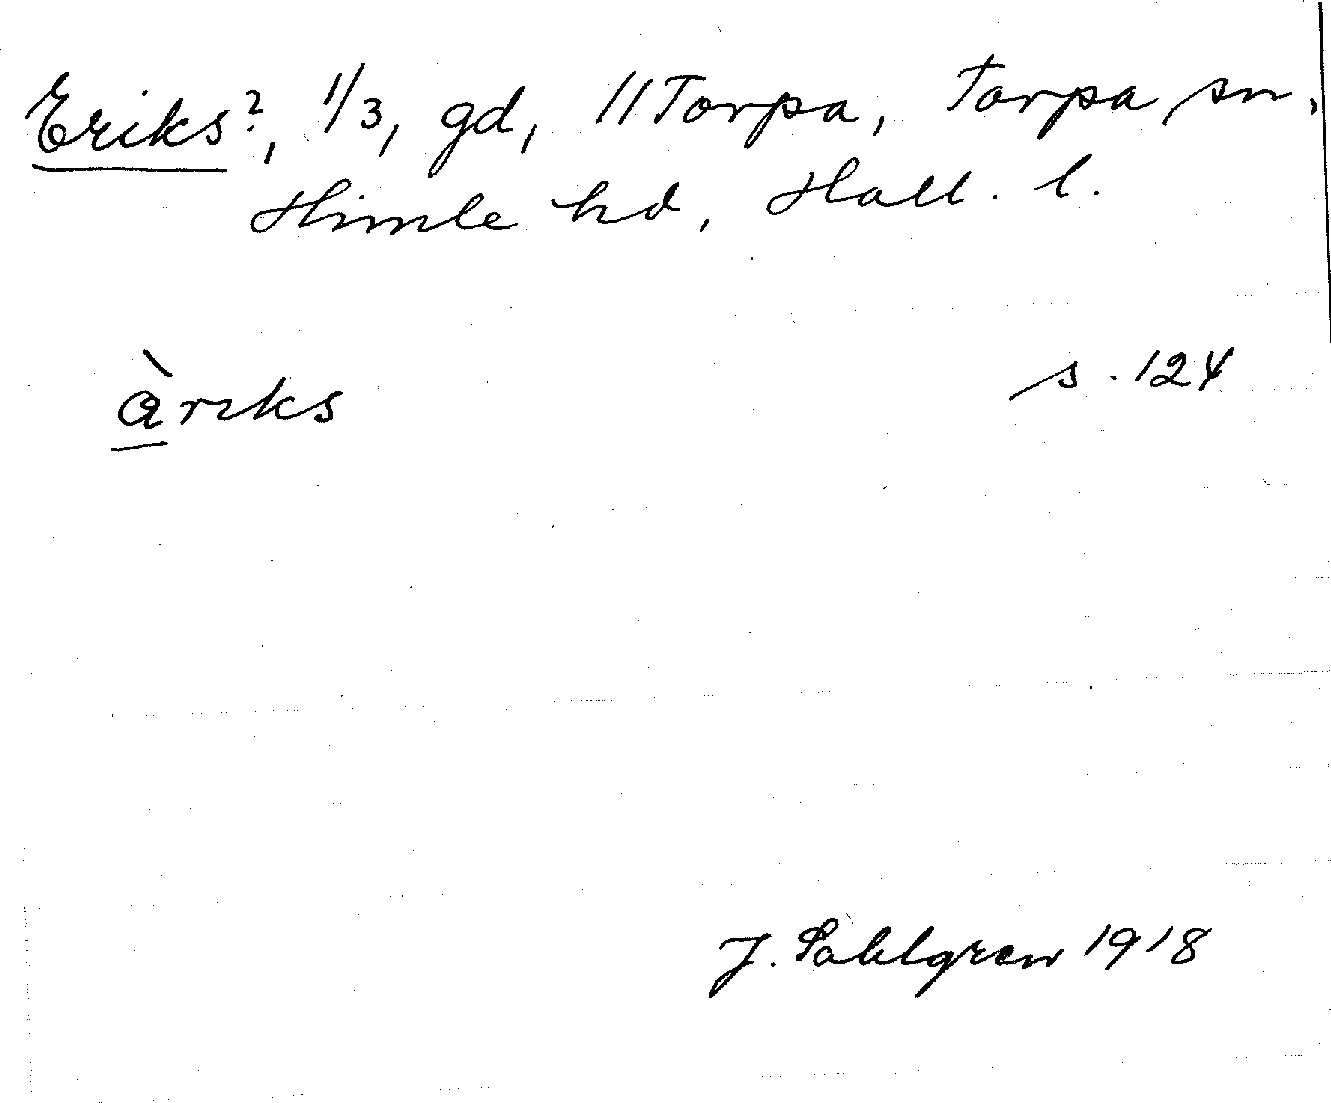 Eriks?, 1/3, gd, 11 Torpa, Torpa sn,
Himle hd, Hall. l.
àriks
s. 124
J. Sahlgren 1918